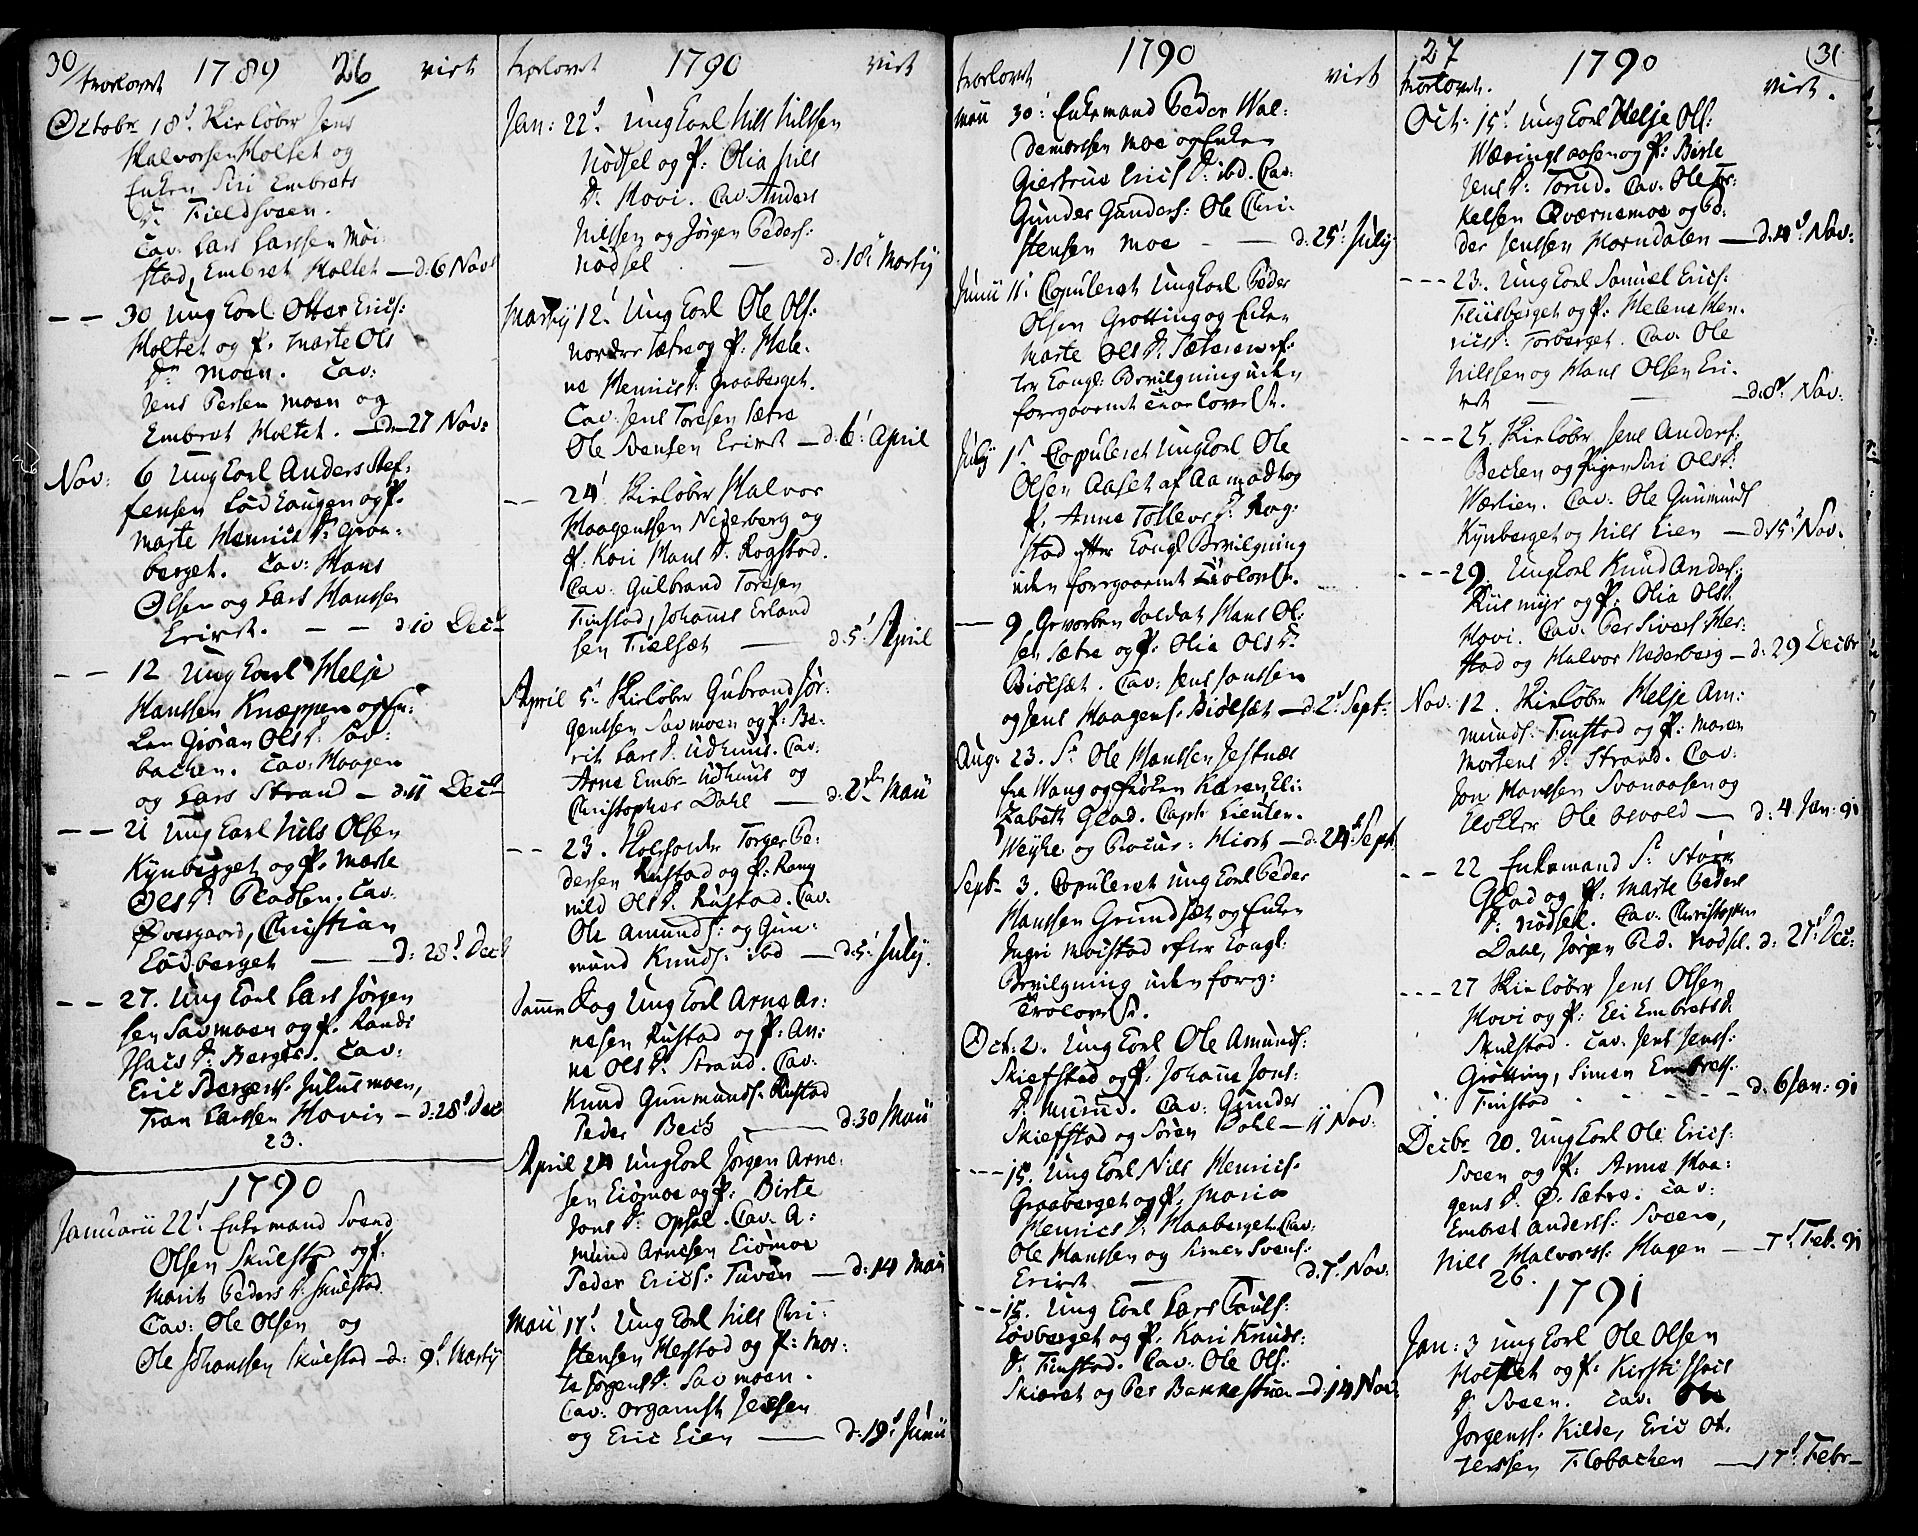 30
trolovet 1789 26 viet
Octobr 18d. Skieløber Jens
Halvorsen Holtet og
Enken Siri Embrets
D. Fieldsveen.
Cav: Lars Larssen Moi-
stad, Embret Holtet — d. 6 Nov:
— — 30 Ung Karl Otter Erics:
Holtet og P. Marte Ols
Dr. Moen. Cav:
Jens Persen Moen og
Embret Holtet. — d. 27 Nov:
Nov: 6 Ung Karl Anders Stef-
fensen Lødhaugen og P.
Marte Henrics D. Graa-
berget. Cav: Hans
Olsen og Lars Hanssen
Erivet. — — d. 10 Decb
— — 12 Ung Karl Helje
Hanssen Knappen og En-
ken Giøran Ols D. Sav-
backen. Cav: Haagen
og Lars Strand — d. 11 Decb
— — 21 Ung Karl Nils Olsen
Kynberget og P. Marte
Ols D. Pladsen. Cav.
Øvergaard, Christian
Lødberget — — d. 28d Dec
— — 27. Ung Karl Lars Jørgen
sen Savmoen og P. Randi
Isacs D. Berger. Cav:
Eric Bergerss. Julusmoen,
Fran Larssen Hovin — d. 28d Dec
23.
1790
Januarii 22d. Enkemand Svend
Olsen Skulstad og P.
Marit Peders D. Skulstad
Cav: Ole Olsen og
Ole Johanssen Skulstad — d. 9d Martij
trolovet 1790 viet
Jan: 22d. Ung Karl Nils Nilssen
Nødsel og P: Olia Nils
D. Hovi. Cav: Anders
Nilssen og Jørgen Peders:
Nødsel — d. 18d Martij
Martij 12d. Ung Karl Ole Ols:
Nordre Sætre og P. Hele-
ne Henrics D. Graaberget.
Cav: Jens Toresen Sætre
Ole Svensen Erivet — d. 6d April
— — 24d Skieløber Halvor
Haagenssen Nederberg og
P. Kari Hans D. Rogstad.
Cav: Gulbrand Toresen
Finstad, Johannes Erland
sen Fielsæt — d. 5d April
April 5d. Skieløber Gubrand Jør-
gensen Savmoen og P: Be-
rit Lars D. Udhuus. Cav:
Arne Embr. Udhuus og
Christopher Dahl — d. 2den Maii
— — 23. Torger Pe-
dersen Rustad og P: Rang
nild Ols D. Rustad. Cav:
Ole Amunds: og Gun-
mund Knuds: ibd — d. 5d July.
Samme Dag Ung Karl Arne Ar-
nesen Rustad og P: An-
ne Ols D. Strand. Cav:
Knud Gunmunds. Rustad
Peder Beck — d. 30 Maii
April 24 Ung Karl Jørgen Arne-
sen Eiømoe og P: Birte
Jons D. Opsal. Cav: A-
mund Arnesen Eiømoe
Peder Erics: Tuven — d. 14 Maii
Maii 17d. Ung Karl Nils Chri-
stensen Herstad og P: Mar-
te Jørgens D. Savmoen.
Cav: Organist Jessen
og Eric Lien — d. 19d Junii
trolovet 1790 viet
Maii 30: Enkemand Peder Wal-
demorsen Moe og Enken
Giertrue Erics D: ibd. Cav:
Gunder Gunders: Ole Chri-
stensen Moe — — d. 25d July
Junii 11. Copuleret Ung Karl Peder
Olsen Grøtting og Enken
Marte Ols D. Sæteren ef-
ter Kongl: Bevilgning uden
foregaaende Trolovelse.
July 1d. Copuleret Ung Karl Ole
Olsen Aaset af Aamodt og
P. Anne Tollevs D: Rog-
stad efter Kongl Bevilgning
uden foregaaende Trolovelse.
— 9 Gevorben Soldat Hans Ol-
sen Sætre og P: Olia Ols D.
Biølsæt. Cav: Jens Janssen
og Jens Haagens. Biølsæt — d. 2d Sept.
Aug: 23. Sr. Ole Hanssen Jestnæs
fra Wang og Frøken Karen Eli-
zabeth Glad. Capt: Lieuten.
Weyhe og Procur: Hiort — d. 24d Sept
Septr 3. Copuleret Ung Karl Peder
Hanssen Grundsæt og Enken
Ingri Moistad efter Kongl:
Bevilgning uden foreg:
Trolovelse.
Oct: 2. Ung Karl Ole Amunds:
Skiefstad og P. Johanne Jons:
D. Murud. Cav: Gunder
Skiefstad og Søren Dahl — 11 Nov:
— — 15. Ung Karl Nils Henrics.
Graaberget og P. Maria
Henrics D. Haaberget. Cav:
Ole Hanssen og Simen Svens:
Erivet — d. 7d. Nov:
— — 15. Ung Karl Lars Pouls:
Løvberget og P. Kari Knuds:
D. Finstad. Cav: Ole Ols:
Skiæret og Per Bakkestuen — d. 14 Nov:
27 31
trolovet. 1790 viet.
Oct: 15d. Ung Karl Helje Ols:
Wæringsaasen og P: Birte
Jens D: Torud. Cav: Ole Tor-
kelsen Qværnemoe og Pe-
der Jenssen Horndalen — d. 4d. Nov:
— — 23. Ung Karl Samuel Erics:
Fliisberget og P: Helene Hen-
rics D: Torberget. Cav: Ole
Nilssen og Hans Olsen Eri-
vet — — d. 8d Nov:
— — 25. Skieløber Jens Anders:
Becken og Pigen Siri Ols D:
Wærlien. Cav: Ole Gunmunds
Kynberget og Nils Lien — d. 15d Nov.
— — 29. Ung Karl Knud Anders:
Riismyr og P: Olia Ols D.
Hovi. Cav: Per Sivers: Her-
stad og Halvor Nederberg — d. 29 Decbr
Nov: 12. Skieløber Helje Am-
munds: Finstad og P: Maren
Mortens D: Strand. Cav:
Jon Hanssen Svenaasen og
OleÆvold — d. 4 Jan: 91
— — 22 Enkemand Sr: Størk
Glad og P: Marte Peders
D. Nødsel. Cav: Christopher
Dahl, Jørgen Ped. Nødsel. d. 27d. Dec:
— — 27 Skieløber Jens Olsen
Hovi og P: Eli Embrets D.
Skulstad. Cav: Jens Jenss:
Grøtting, Simen Embretss:
Finstad — — d. 6 Jan: 91
Decbr 20. Ung Karl Ole Erics:
Sveen og P: Anne Haa-
gens D. Ø. Sætre. Cav:
Embret Anderss: Sveen,
Nils Halvorss: Hagen — 7d. Feb. 91
26.
1791
Jan: 3 Ung Karl Ole Olsen
Holstet og P. Kirsti Isacs
D. Sveen. Cav: Ole
Jørgenss. Kilde, Eric Ot-
terssen Flobacken — 17d. Febr.